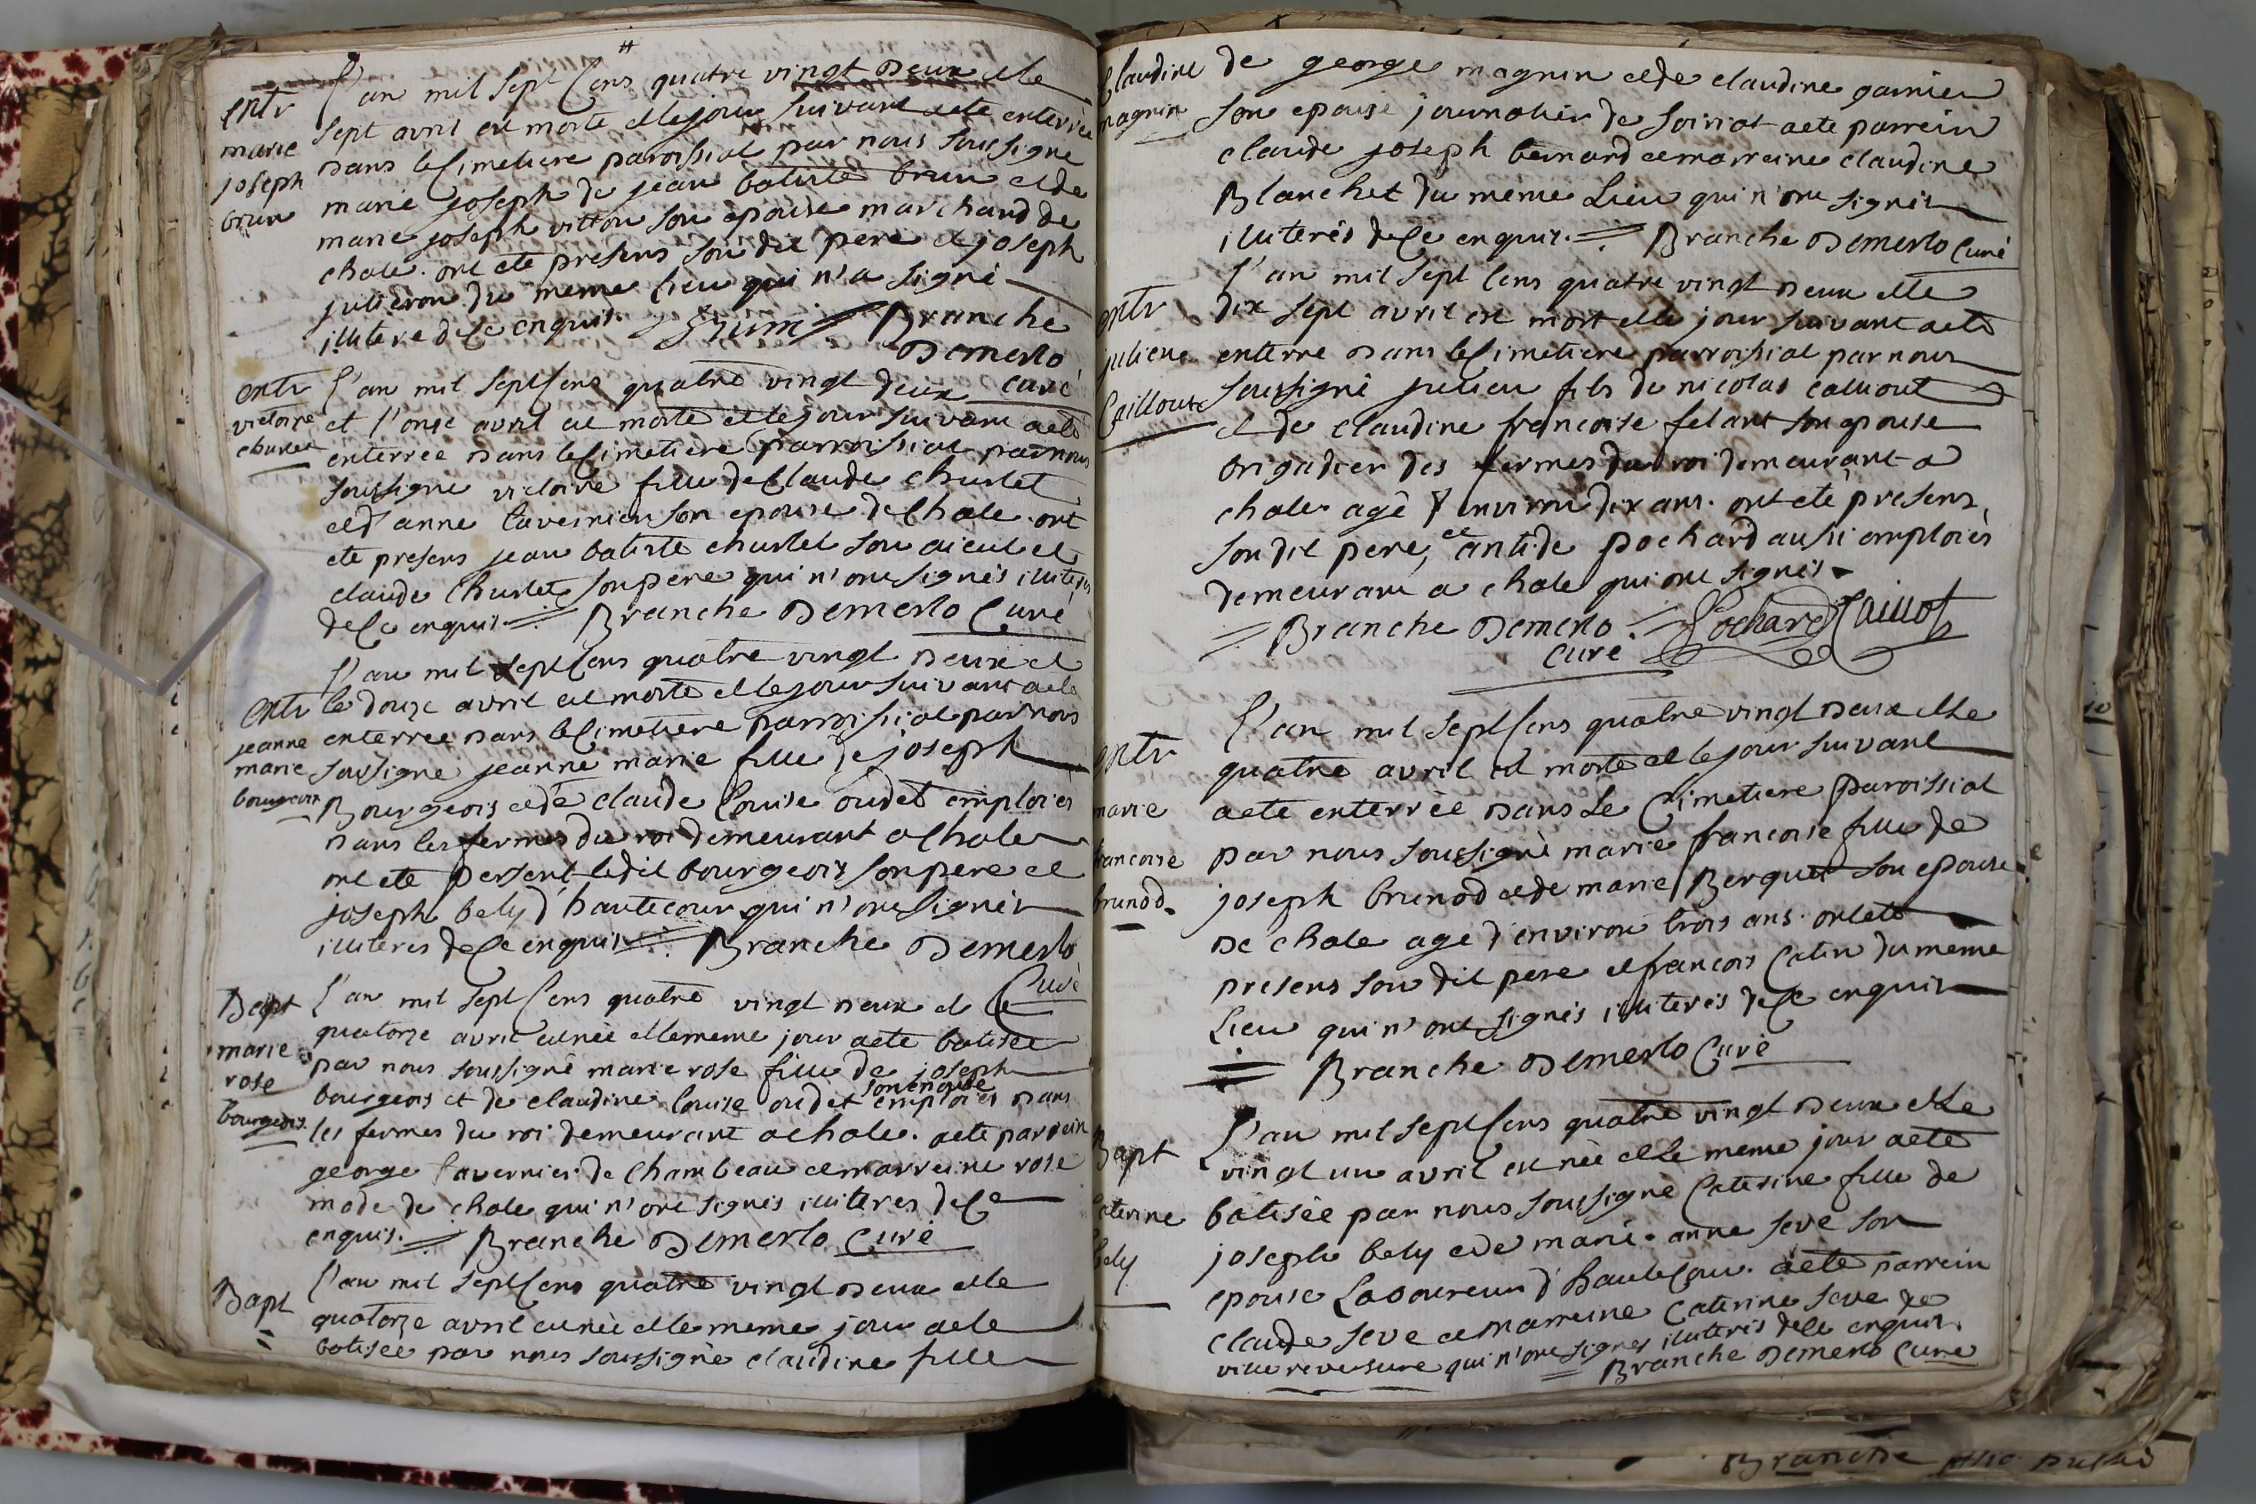 entr
marie
joseph
brun
L'an mil sept Cens quatre vingt Deux et le
sept avril est morte et le jour suivant a ete enterrée
Dans le Cimetiere paroissial par nous soussigné
marie joseph de jean batiste brun et de
marie joseph vitton son epouse marchand de
chale. ont ete presens son dit pere et joseph
julieron du meme lieu qui n'a signé
illitere de ce enquis. Brun Branche
Demerlo
curé
entr
victoire
churlet
L'an mil sept Cens quatre vingt deux
et l'onze avril est morte et le jour suivant a ete
enterrée Dans le Cimetiere parroissial par nous
soussigné victoire fille de Claude Churlet
et d'anne tavernier son epouse de Chale. ont
ete presens jean batiste churlet son aieul et
claude Churlet son pere qui n'ont signés illiterés
de ce enquis. Branche Demerlo Curé
entr
jeanne
marie
bourgeois
L'an mil sept Cens quatre vingt Deux et
le douze avril est morte et le jour suivant a ete
enterrée Dans le Cimetiere parroissial par nous
soussigné jeanne marie fille de joseph
Bourgeois et de claude Louise oudet emploiés
Dans les fermes du roi demeurant a Chale
ont ete persent ledit bourgeois son pere et
joseph bely d'hautecour qui n'ont signés
illiteres de ce enquis Branche Demerlo
Curé
Bapt
marie
rose
bourgeois
L'an mil sept Cens quatre vingt Deux et le
quatorze avril est née et le meme jour a ete batisée
par nous soussigné marie rose fille de joseph
bourgeois et de claudine louise oudet son epouse emploiés Dans
les fermes du roi demeurant a chale. a ete parrein
george tavernier de Chambeau et marreine rose
mode de chale qui n'ont signés illiteres de Ce
enquis. Branche Demerlo Curé
Bapt
L'an mil sept Cens quatre vingt Deux et le
quatorze avril est née et le meme jour a ete
batisée par nous soussigné claudine fille
Claudine
magnin
de george magnin et de claudine garnier
son epouse journalier de soiriat a ete parrein
claude joseph bernard et marreine claudine
Blanchet du meme Lieu qui n'ont signés
illiterés de ce enquis. Branche Demerlo Curé
entr
juliene
Caillout
L'an mil sept Cens quatre vingt Deux et le
dix sept avril est mort et le jour suivant a ete
enterré Dans le Cimetiere parroissial par nous
soussigné julien fils de nicolas caillout
et de claudine francoise felant son epouse
brigadier des fermes du roi demeurant a
chale. agé d'environ dix ans. ont eté presens
son dit pere, et antide pochard aussi emploiés
demeurant a chale qui ont signés
Branche Demerlo Pochard Caillot
curé
entr
marie
francoise
brunod
L'an mil sept Cens quatre vingt Deux et le
quatre avril est morte et le jour suivant
a ete enterrée Dans Le Cimetiere paroissial
par nous soussigné marie francoise fille de
joseph brunod et de marie Berquet son epouse
De chale age d'environ trois ans. ont ete
presens son dit pere et francois Catin du meme
Lieu qui n'ont signés illiterés de ce enquis
Branche Demerlo Curé
Bapt
Caterine
bely
L'an mil sept Cens quatre vingt Deux et le
vingt un avril est née et le meme jour a ete
batisée par nous soussigné Caterine fille de
joseph bely et de marie anne seve son
epouse Laboureur d'hauteCour. a ete parrein
claude seve et marreine Caterine seve de
villereversure qui n'ont signés illiterés de ce enquis.
Branche Demerlo Curé
Branche